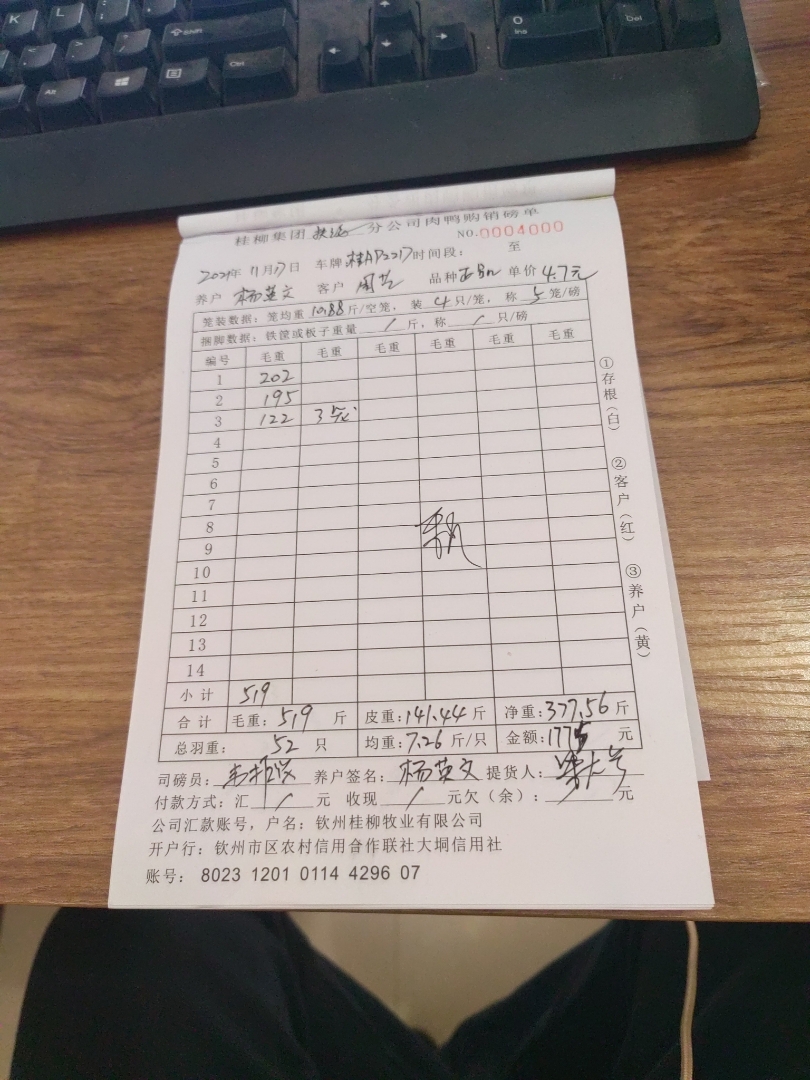 K L : " Shift
< > ?
Alt Ctrl 0 Ins . Del
桂柳集团 分公司肉鸭购销磅单
NO.0004000
2021年11月17日 车牌 桂AP2217 时间段： 至
养户 杨英文 客户 周 品种 单价 4.7元
笼装数据：笼均重 10.88 斤/空笼，装 4 只/笼，称 5 笼/磅
捆脚数据：铁筐或板子重量 / 斤，称 / 只/磅
编号 毛重 毛重 毛重 毛重 毛重 毛重
1 202
2 195
3 122 3笼
4
5
6
7
8
9
10
11
12
13
14
小计 519
合计 毛重：519 斤 皮重：141.44 斤 净重：377.56 斤
总羽重： 52 只 均重：7.26 斤/只 金额：1775 元
司磅员： 养户签名：杨英文 提货人：
付款方式：汇 / 元 收现 / 元欠（余）： / 元
公司汇款账号，户名：钦州桂柳牧业有限公司
开户行：钦州市区农村信用合作联社大垌信用社
账号： 8023 1201 0114 4296 07
①存根（白）
②客户（红）
③养户（黄）